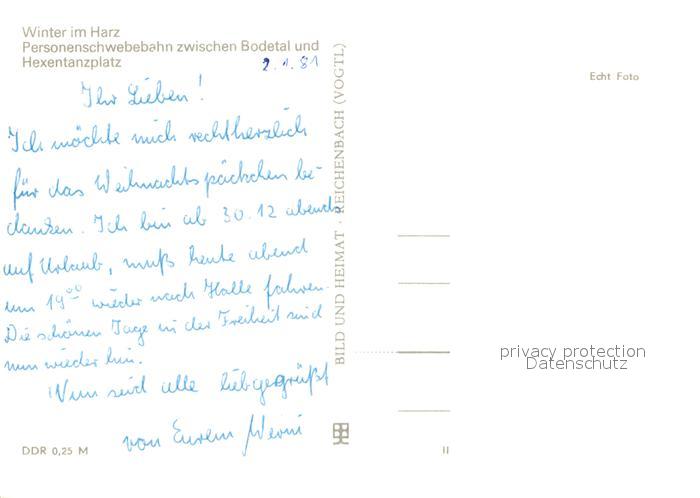 Winter im Harz
Personenschwebebahn zwischen Bodetal und
Hexentanzplatz
2.1.81
Echt Foto
Ihr Lieben!
Ich möchte mich rechtherzlich
für das Weihnachtspäckchen be-
danken. Ich bin ab 30.12 abends
auf Urlaub, muß heute abend
um 19⁰⁰ wieder nach Halle fahren.
Die schönen Tage in der Freiheit sind
nun wieder hin.
Nun seid alle liebgegrüßt
von Eurem
BILD UND HEIMAT · REICHENBACH (VOGTL)
privacy protection
Datenschutz
DDR 0,25 M
II